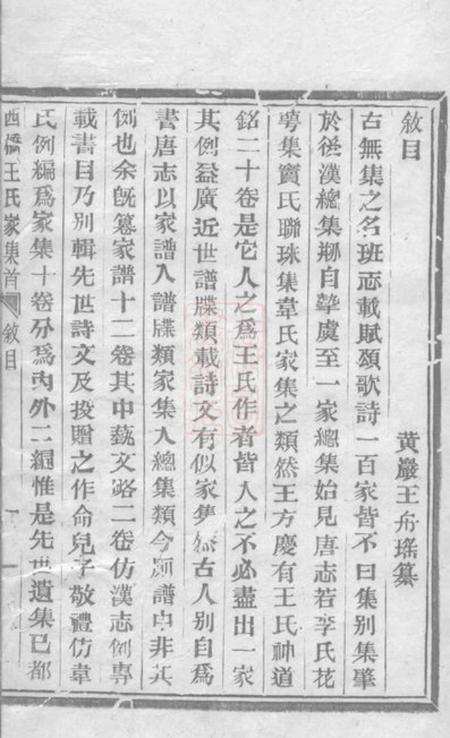 敘目
黃巖王舟瑤纂
古無集之名班志載賦頌歌詩一百家皆不曰集別集肇
於後漢總集剏自摯虞至一家總集始見唐志若李氏花
萼集竇氏聯珠集韋氏家集之類然王方慶有王氏神道
銘二十卷是它人之爲王氏作者皆入之不必盡出一家
其例益廣近世譜牒類載詩文有似家集然古人別自爲
書唐志以家譜入譜牒類家集入總集類今廁譜中非其
例也余旣纂家譜十二卷其中藝文略二卷仿漢志例專
載書目乃別輯先世詩文及投贈之作命兒子敬禮仿韋
氏例編爲家集十卷分爲內外二編惟是先世遺集已都
西橋王氏家集首 敘目 一